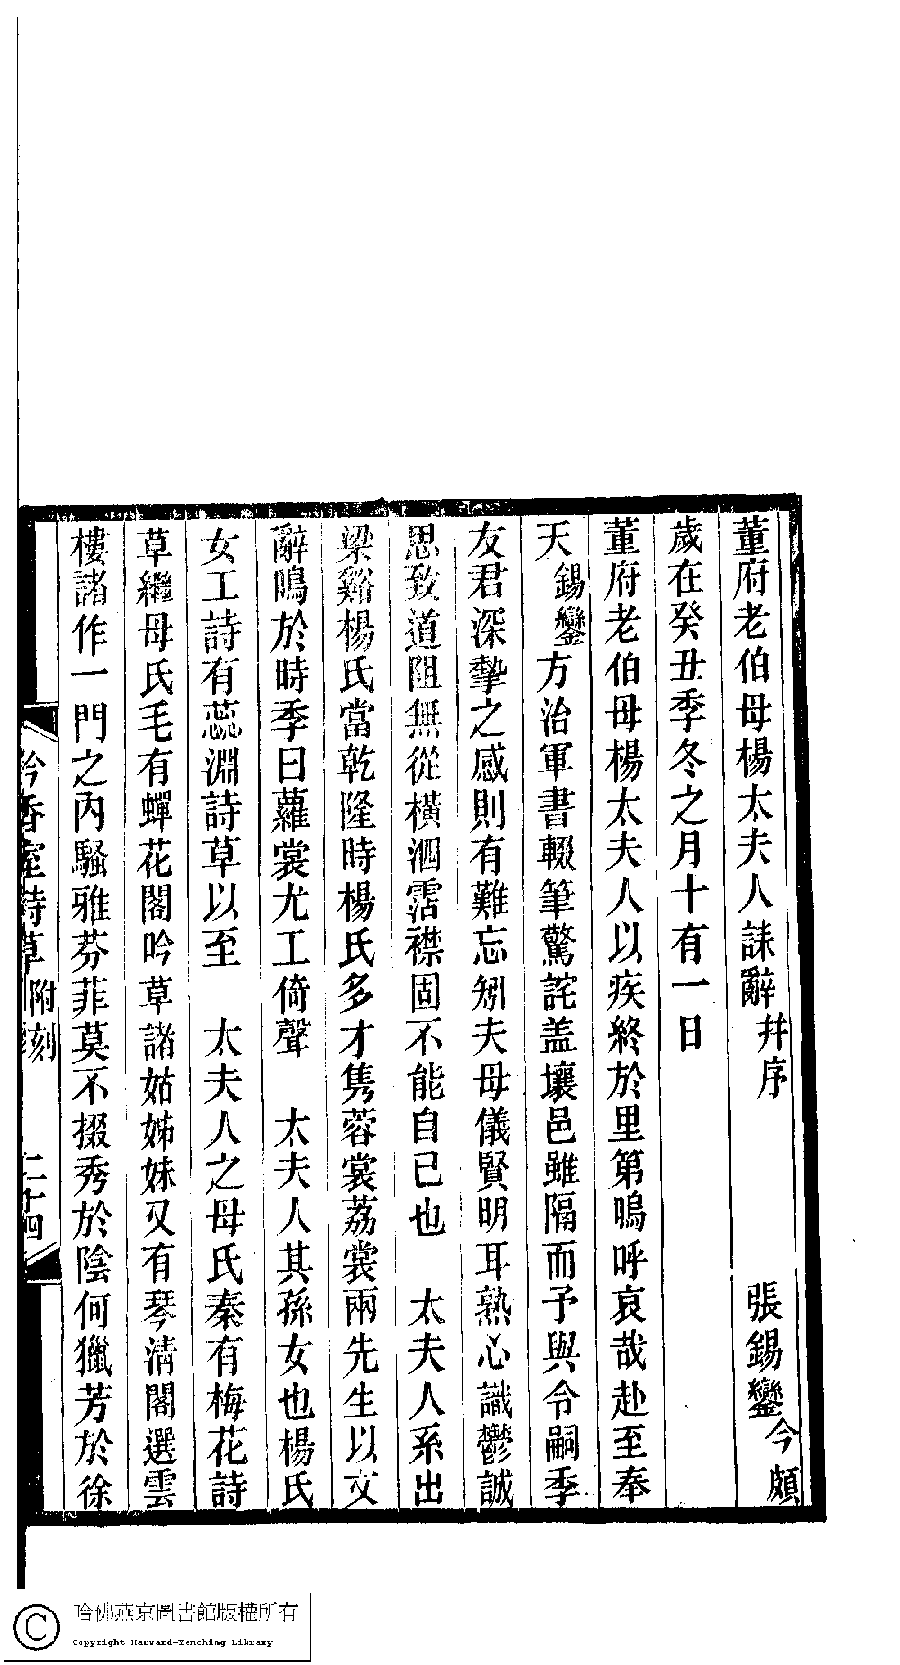 董府老伯母楊太夫人誄辭 并序 張錫鑾 今頗
歲在癸丑季冬之月十有一日
董府老伯母楊太夫人以疾終於里第嗚呼哀哉赴至奉
天錫鑾方治軍書輟筆驚詫盖壤邑雖隔而予與令嗣季
友君深摯之感則有難忘矧夫母儀賢明耳熟心識鬱誠
思致道阻無從橫泗霑襟固不能自已也 太夫人系出
梁谿楊氏當乾隆時楊氏多才雋蓉裳荔裳兩先生以文
辭鳴於時季曰蘿裳尤工倚聲 太夫人其孫女也楊氏
女工詩有蕊淵詩草以至 太夫人之母氏秦有梅花詩
草繼母氏毛有蟬花閣吟草諸姑姊妹又有琴清閣選雲
樓諸作一門之內騷雅芬菲莫不掇秀於陰何獵芳於徐
衿香室詩草 附刻 二十四
哈佛燕京圖書館版權所有
Copyright Harvard-Yenching Library